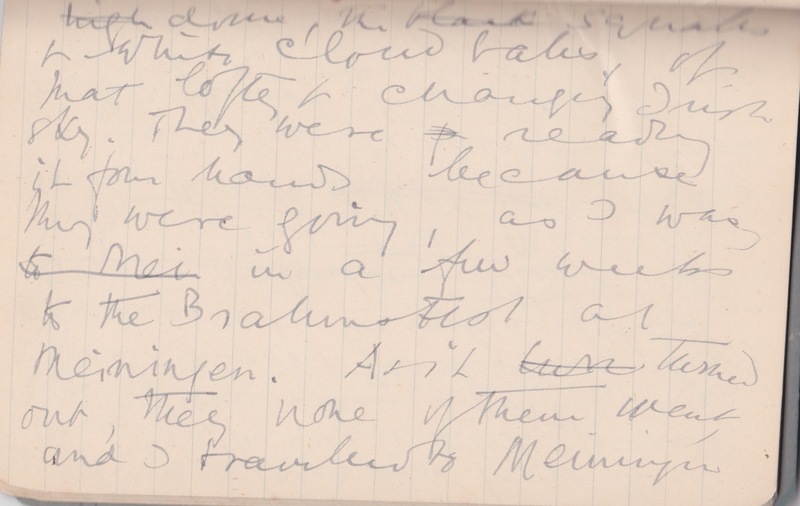 high dome, the black squalls
& white cloud bales, of
that lofty & changing Irish
sky. They were reading
it four hands because
they were going, as I was,
to Mei in a few weeks
to the Brahmsfest at
Meiningen. As it turned
out, they none of them went,
and I travelled to Meiningen